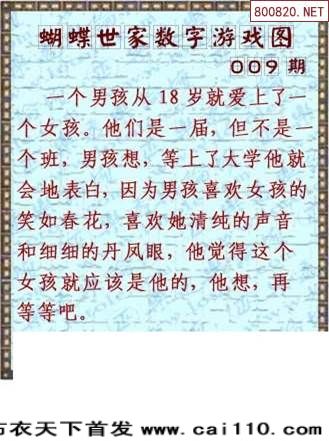 800820.NET
蝴蝶世家数字游戏图
009 期
一个男孩从 18 岁就爱上了一
个女孩。他们是一届，但不是一
个班，男孩想，等上了大学他就
会地表白，因为男孩喜欢女孩的
笑如春花，喜欢她清纯的声音
和细细的丹凤眼，他觉得这个
女孩就应该是他的，他想，再
等等吧。
布衣天下首发 www.cai110.com